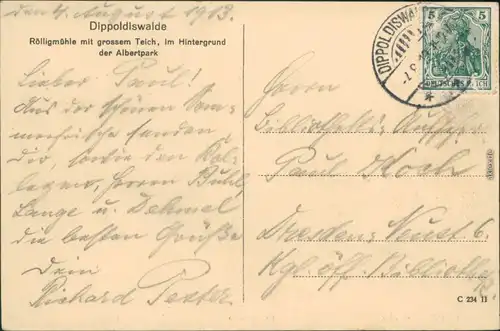 den 4. August 1913.
Dippoldiswalde
Rölligmühle mit grossem Teich, im Hintergrund
der Albertpark
Lieber Paul!
Aus der schönen Som-
merfrische senden
Dir, sowie den Kol-
legen, Herren Buhl,
Lange u. Dehmel
die besten Grüße
Dein
Richard Pester
DIPPOLDISWALDE
5 5
DEUTSCHES REICH
Herrn
Bibliotheks
Paul Koch
Dresden-Neust 6.
Kgl. öff. Bibliothek
C 234 II